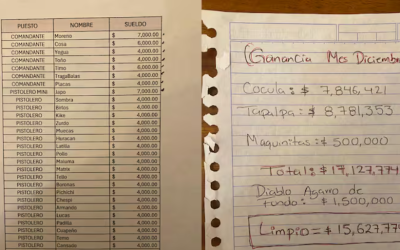 PUESTO NOMBRE SUELDO
COMANDANTE Moreno $ 7,000.00
COMANDANTE Cosa $ 6,000.00
COMANDANTE Yegua $ 4,000.00
COMANDANTE Toño $ 4,000.00
COMANDANTE Timo $ 6,000.00
COMANDANTE TragaBalas $ 4,000.00
COMANDANTE Placas $ 4,000.00
PISTOLERO MINI Jugo $ 7,000.00
PISTOLERO Sombra $ 4,000.00
PISTOLERO $ 4,000.00
PISTOLERO Kike $ 4,000.00
PISTOLERO Zurdo $ 4,000.00
PISTOLERO $ 4,000.00
PISTOLERO Huracan $ 4,000.00
PISTOLERO $ 4,000.00
PISTOLERO Pollo $ 4,000.00
PISTOLERO $ 4,000.00
PISTOLERO $ 4,000.00
PISTOLERO Tello $ 4,000.00
PISTOLERO $ 4,000.00
PISTOLERO Pichichi $ 4,000.00
PISTOLERO $ 4,000.00
PISTOLERO Armando $ 4,000.00
PISTOLERO Lucas $ 4,000.00
PISTOLERO Padilla $ 4,000.00
PISTOLERO $ 4,000.00
PISTOLERO $ 4,000.00
PISTOLERO $ 4,000.00
Ganancia Mes Diciembre
Cocula: $ 7,846,421
Tapalpa: $ 8,781,353
Maquinitas: $ 500,000
Total: $ 17,127,774
Diablo Agarro de
fondo: $ 1,500,000
Limpio = $ 15,627,77